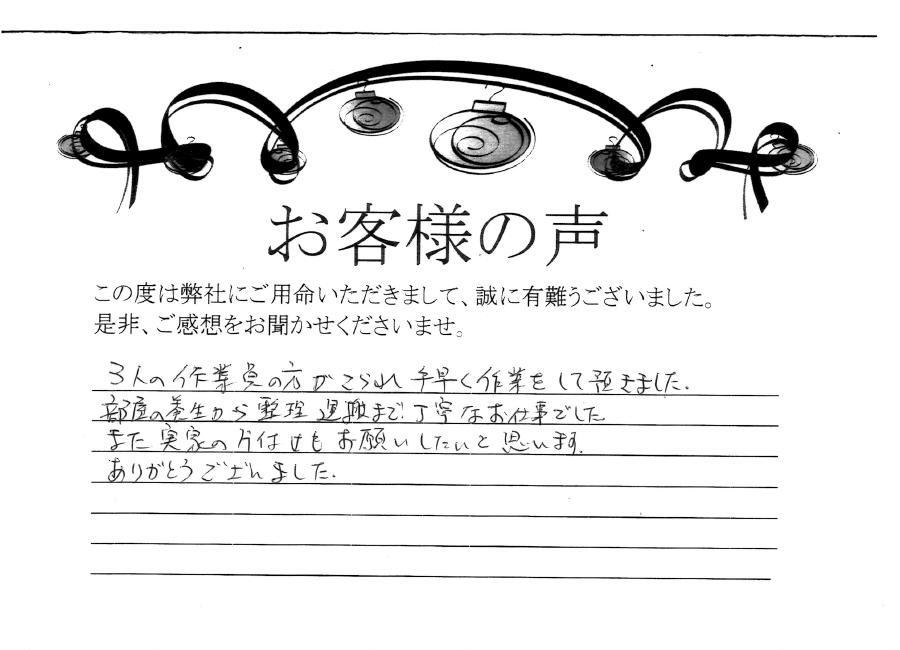 お客様の声
この度は弊社にご用命いただきまして、誠に有難うございました。
是非、ご感想をお聞かせくださいませ。
3人の作業員の方がこられ手早く作業をして頂きました.
部屋の養生から整理 運搬まで丁寧なお仕事でした
また実家の片付けもお願いしたいと思います.
ありがとうございました.